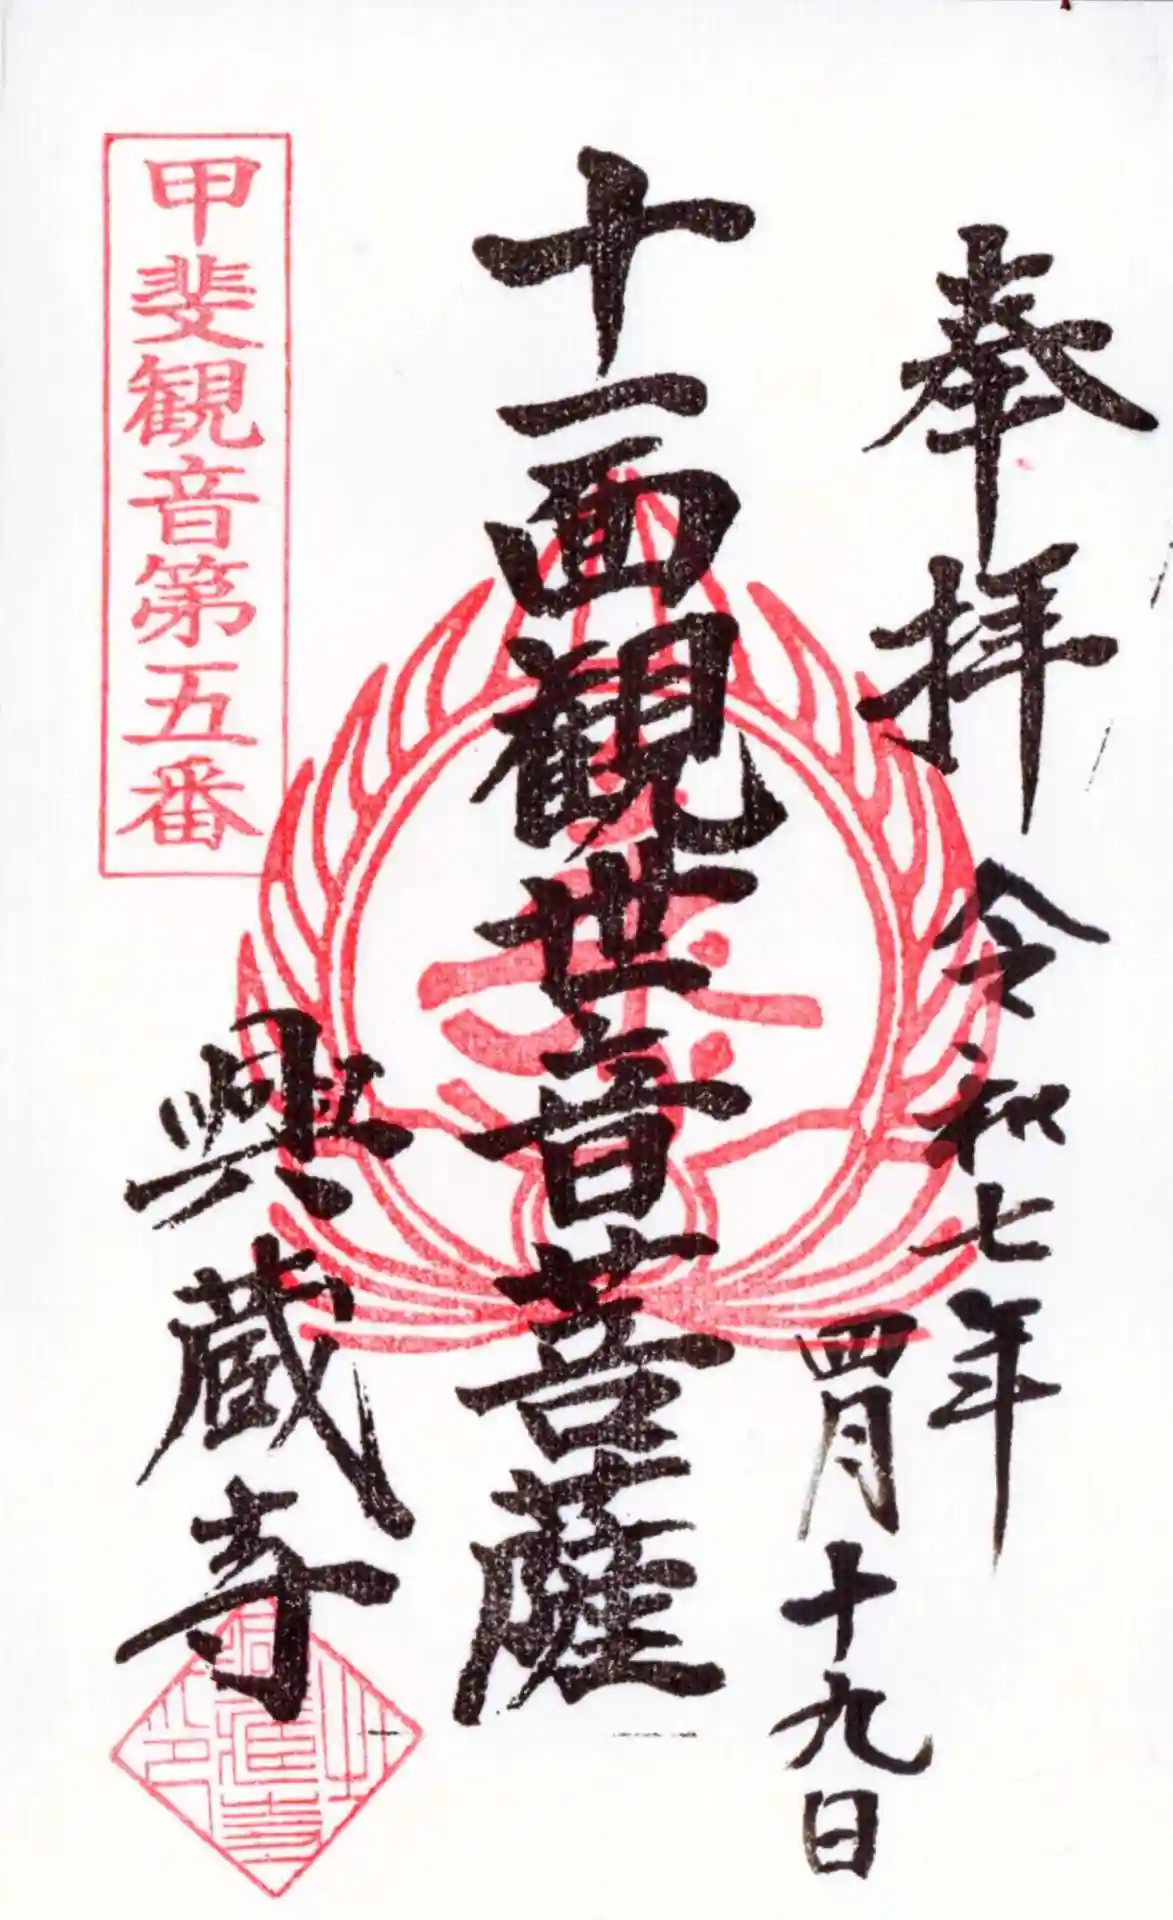 奉拝
令和七年
四月十九日
十一面観世音菩薩
甲斐観音第五番
興蔵寺